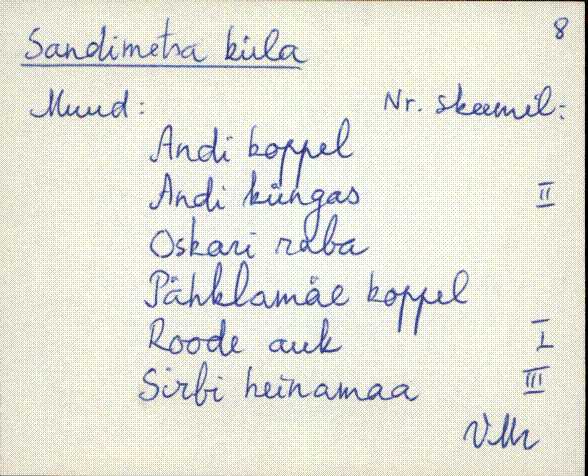 8
Sandimetsa küla
Muud: Nr. skeemil:
Andi koppel
Andi küngas II
Oskari raba
Pähklamäe koppel
Roode auk I
Sirbi heinamaa III